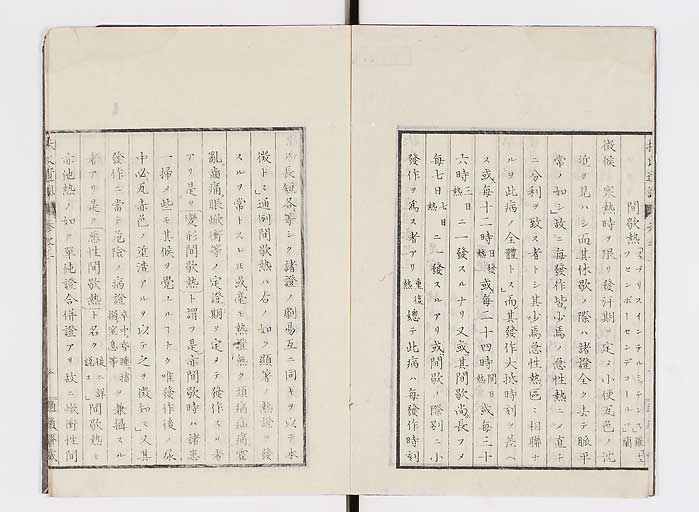 間歇熱「ヘブリスインテルミッテンス」羅
「ツセンポーセンデコールツ」蘭
徴候 寒熱時ヲ限リ發汗期ヲ定メ小便瓦色ノ沈
渣ヲ見ハシ而其休歇ノ際ハ諸證全ク去テ脈平
常ノ如シ」故ニ每發作皆少焉ノ急性熱ニノ直チ
ニ分利ヲ致ス者トシ其少焉急性熱區ニ相聯ナ
ルヲ此病ノ全體トス」而其發作大抵時刻ヲ差ヘ
ス或每十二時 日發熱 或每二十四時 間日熱 或每三十
六時 三日熱 ニ一發スルナリ又或其間歇尚長フメ
每七日 七日熱 ニ一發スルアリ或間歇ノ際別ニ小
發作ヲ爲ス者アリ 重復熱 總テ此病ハ每發作時刻
長短各等シク諸證ノ劇易互ニ同キヲ以テ本
徴トス」通例間歇熱ハ右ノ如ク顯著ノ熱證ヲ發
スルヲ常トスレ𪜈或毫モ熱證無ク頭痛疝痛霍
亂齒痛眼焮衝等ノ定證期ヲ定メテ發作スル者
アリ是ヲ變形間歇熱ト謂フ是亦間歇時ハ諸恙
一掃メ些モ其候ヲ覺エルヿナク唯發作後ノ尿
中必瓦赤色ノ渣アルヲ以テ之ヲ徴知ス」又其
發作ニ當テ危險ノ病證 卒中昏睡搐搦窒息等 ヲ兼攝スル
者アリ是ヲ惡性間歇熱ト名ク 後ニ詳說ス」 間歇熱モ
亦他熱ノ如ク單純證合併證アリ故ニ焮衝性間